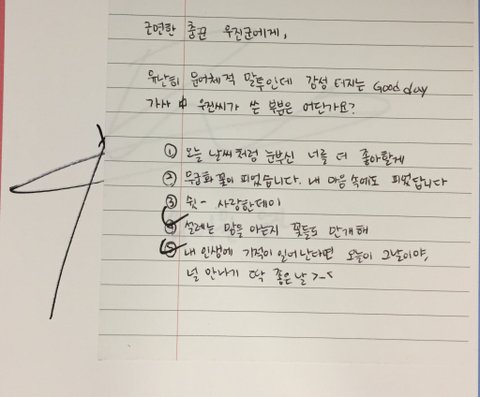 근면한 충꾼 우진군에게,
유난히 문어체적 말투인데 감성 터지는 Good day
가사 中 우진씨가 쓴 부분은 어딘가요?
① 오늘 날씨처럼 눈부신 너를 더 좋아할게
② 무궁화 꽃이 피었습니다. 내 마음 속에도 피었답니다
③ 쉿- 사랑한데이
④ 설레는 맘을 아는지 꽃들도 만개해
⑤ 내 인생에 기적이 일어난다면 오늘이 그날이야,
널 만나기 딱 좋은 날 >_<